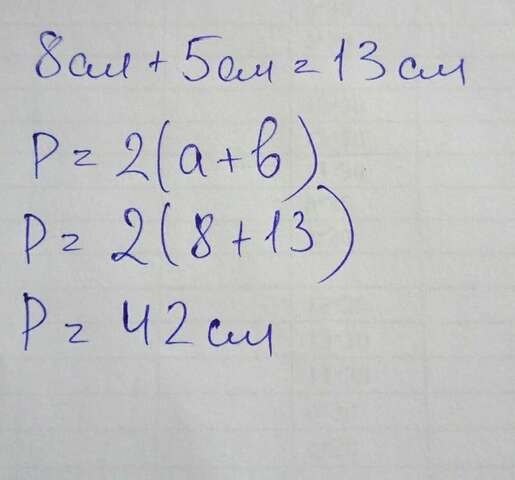 8см + 5см = 13см
P = 2(a + b)
P = 2(8 + 13)
P = 42см